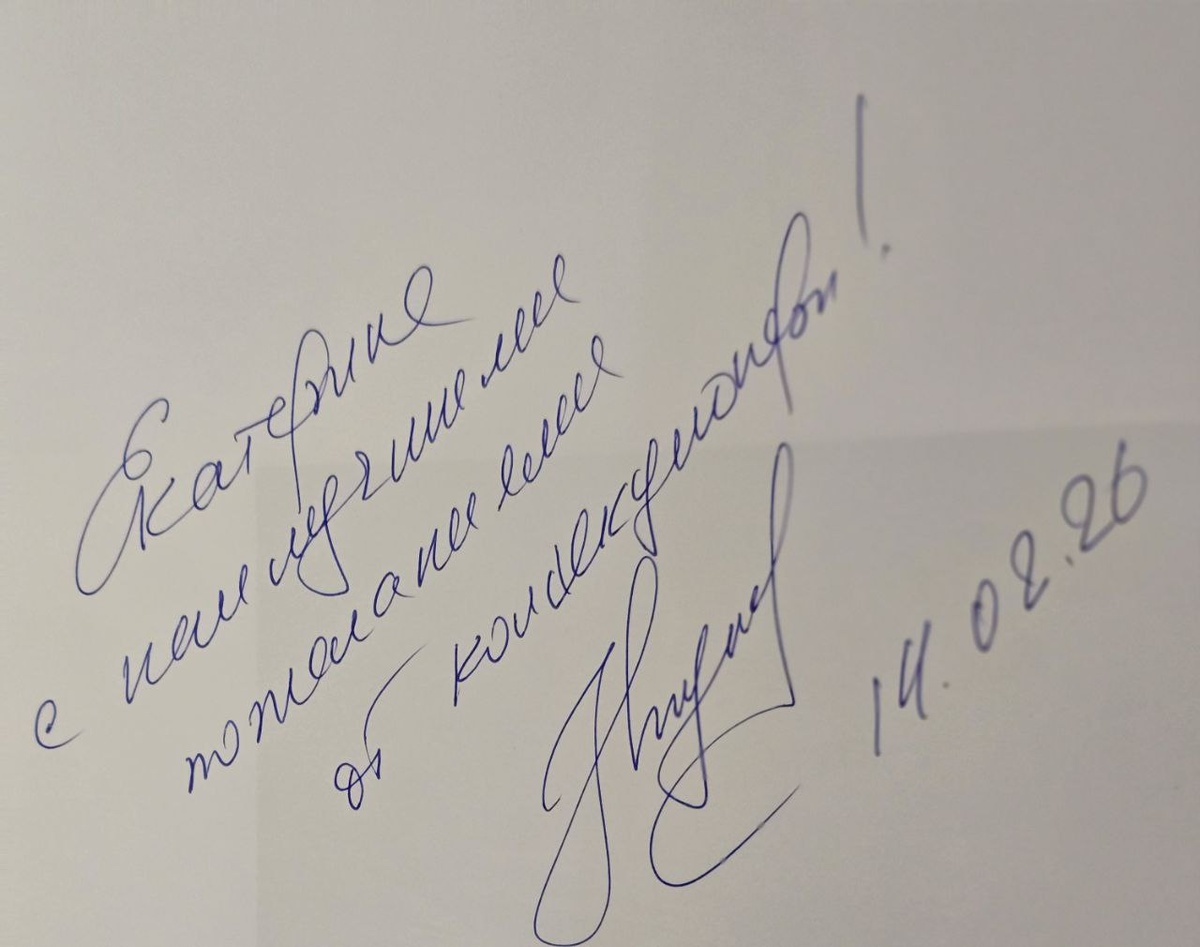 Екатерине
с наилучшими
пожеланиями
от
14.02.26